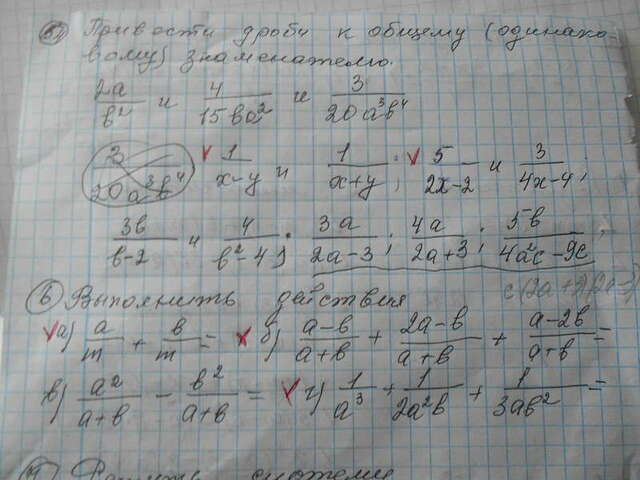 5) Привести дроби к общему (одинако-
вому) знаменателю.
2a/b² и 4/15ba² и 3/20a³b⁴
3/20a³b⁴ √ 1/x-y и 1/x+y ; √ 5/2x-2 и 3/4x-4 ;
3b/b-2 и 4/b²-4 ; 3a/2a-3 ; 4a/2a+3 ; 5b/4a²c-9c ;
6) Выполнить действия
√ а) a/m + b/m = б) a-b/a+b + 2a-b/a+b + a-2b/a+b =
в) a²/a+b - b²/a+b = √ г) 1/a³ + 1/2a²b + 1/3ab² =